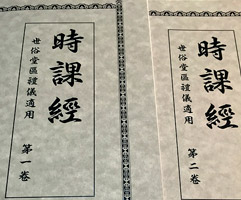 時課經
世俗堂區禮儀適用
第一卷
時課經
世俗堂區禮儀適用
第二卷